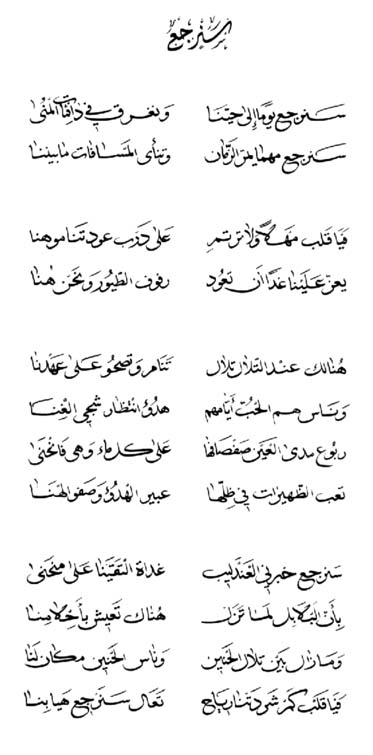 سنرجع
سنرجع يوما إلى حينا ونغرق في دافئات المنى
سنرجع مهما يمر الزمان وتنأى المسافات ما بيننا
فيا قلب مهلا ولا ترتمي على درب عودتنا موهنا
يعز علينا غدا أن تعود رفوف الطيور ونحن هنا
هنالك عند التلال تلال تنام وتصحو على عهدنا
وناس هم الحب أيامهم هدوء انتظار شجي الغنا
ربوع مدى العين صفصافها على كل ماء وهى فانحنى
تعب الظهيرات في ظلها عبير الهدوء وصفو الهنا
سنرجع خبرني العندليب غداة التقينا على منحنى
بأن البلابل لما تزل هناك تعيش بأحلامنا
وما زال بين تلال الحنين وناس الحنين مكان لنا
فيا قلب كم شردتنا رياح تعال سنرجع هيا بنا